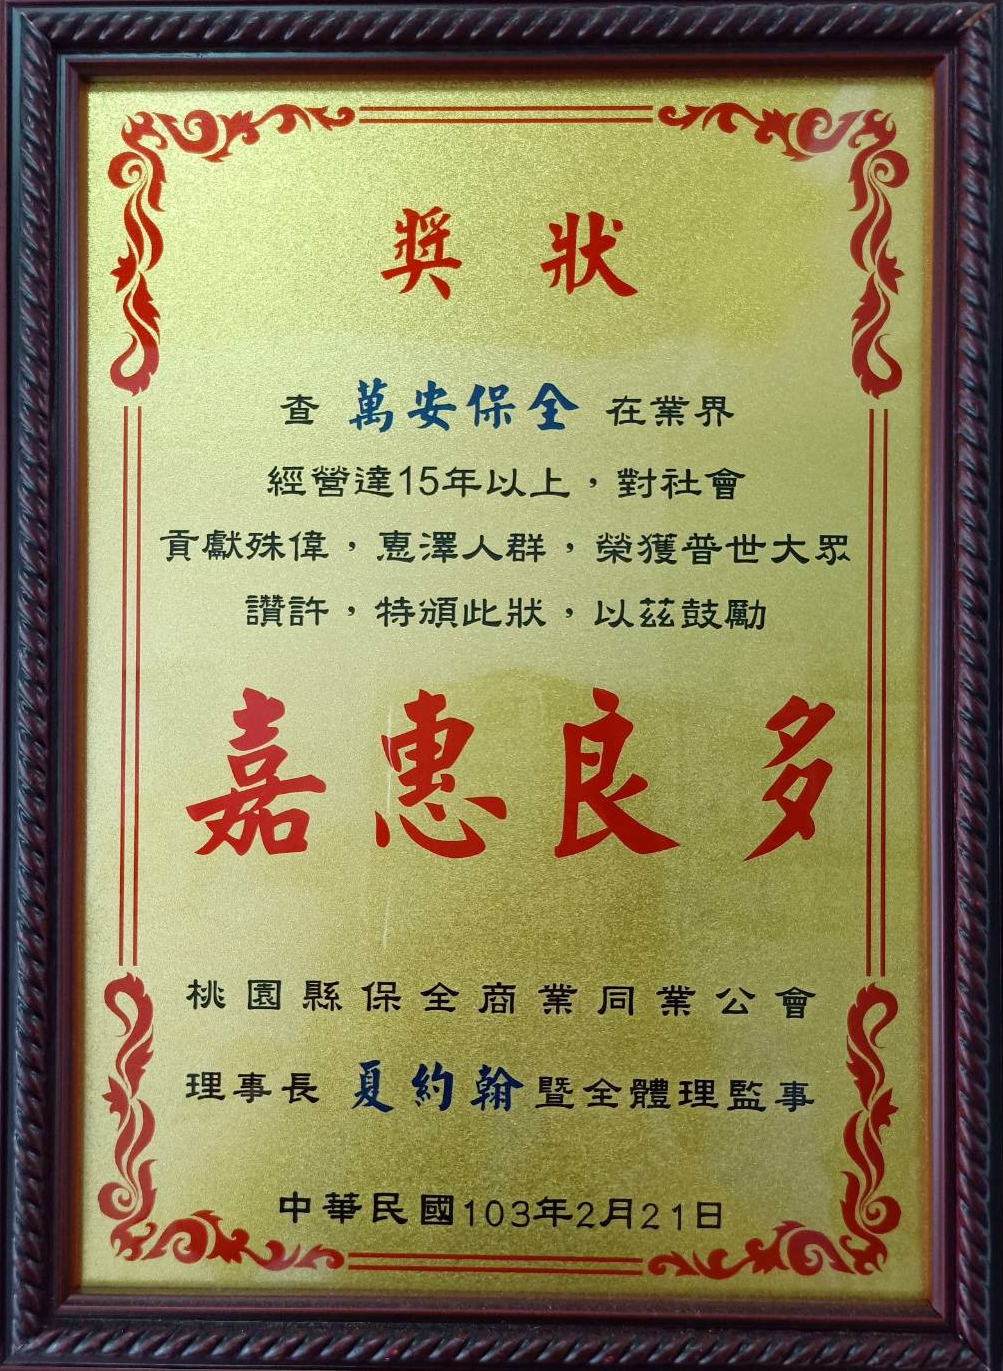 獎狀
查 萬安保全 在業界
經營達15年以上，對社會
貢獻殊偉，惠澤人群，榮獲普世大眾
讚許，特頒此狀，以茲鼓勵
嘉惠良多
桃園縣保全商業同業公會
理事長 夏約翰暨全體理監事
中華民國103年2月21日